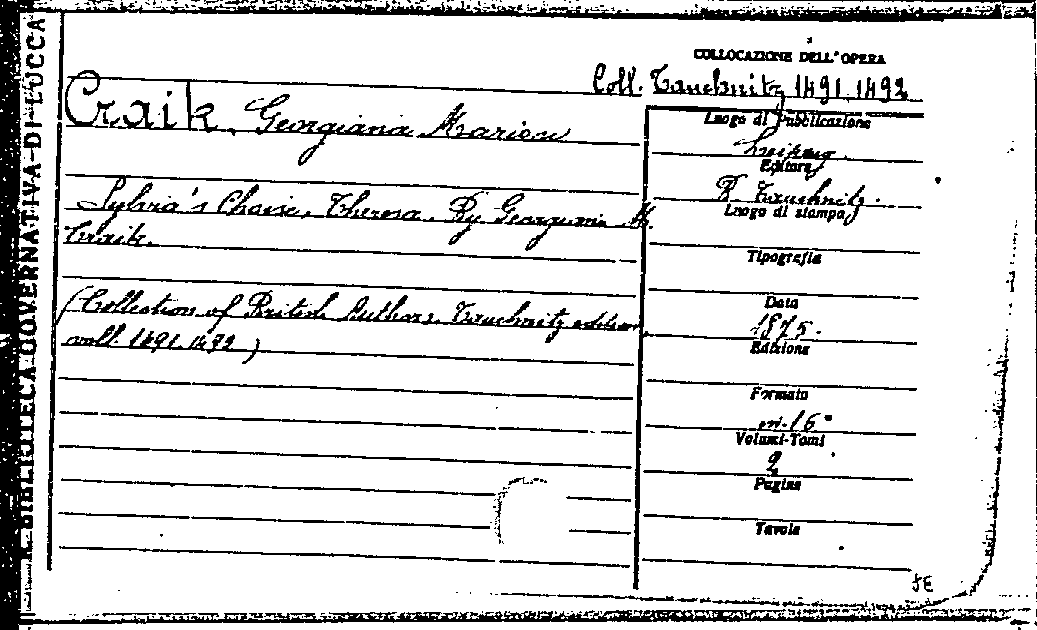 R. BIBLIOTECA GOVERNATIVA DI LUCCA
COLLOCAZIONE DELL'OPERA
Coll. Tauchnitz 1491.1492
Craik, Georgiana Marion
Sylvia's Choise, Theresa. By Georgiana M.
Craik.
(Collection of British Authors. Tauchnitz edition
voll. 1491.1492)
Luogo di Pubblicazione
Leipzig.
Editore
B. Tauchnitz.
Luogo di stampa
Tipografia
Data
1875.
Edizione
Formato
in-16°
Volumi-Tomi
2
Pagine
Tavole